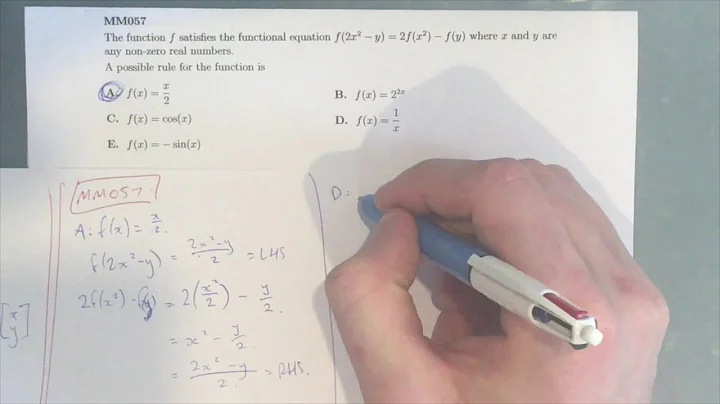 MM057
The function f satisfies the functional equation f(2x² − y) = 2f(x²) − f(y) where x and y are
any non-zero real numbers.
A possible rule for the function is
A. f(x) = x/2
B. f(x) = 2²ˣ
C. f(x) = cos(x)
D. f(x) = 1/x
E. f(x) = − sin(x)
MM057.
A: f(x) = x/2.
f(2x²−y) = (2x²−y)/2 = LHS
2f(x²) - f(y) = 2(x²/2) − y/2.
= x² − y/2.
= (2x² − y)/2 = RHS.
[x y]
D: